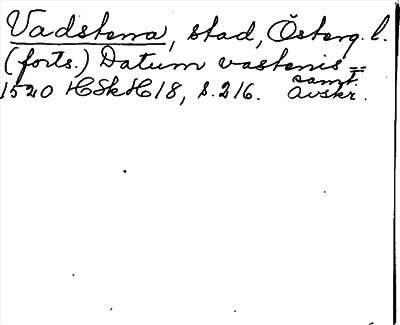 Vadstena, stad, Österg. l.
(forts.) Datum vastenis =
1520 HSkH 18, s. 216. samt. Avskr.